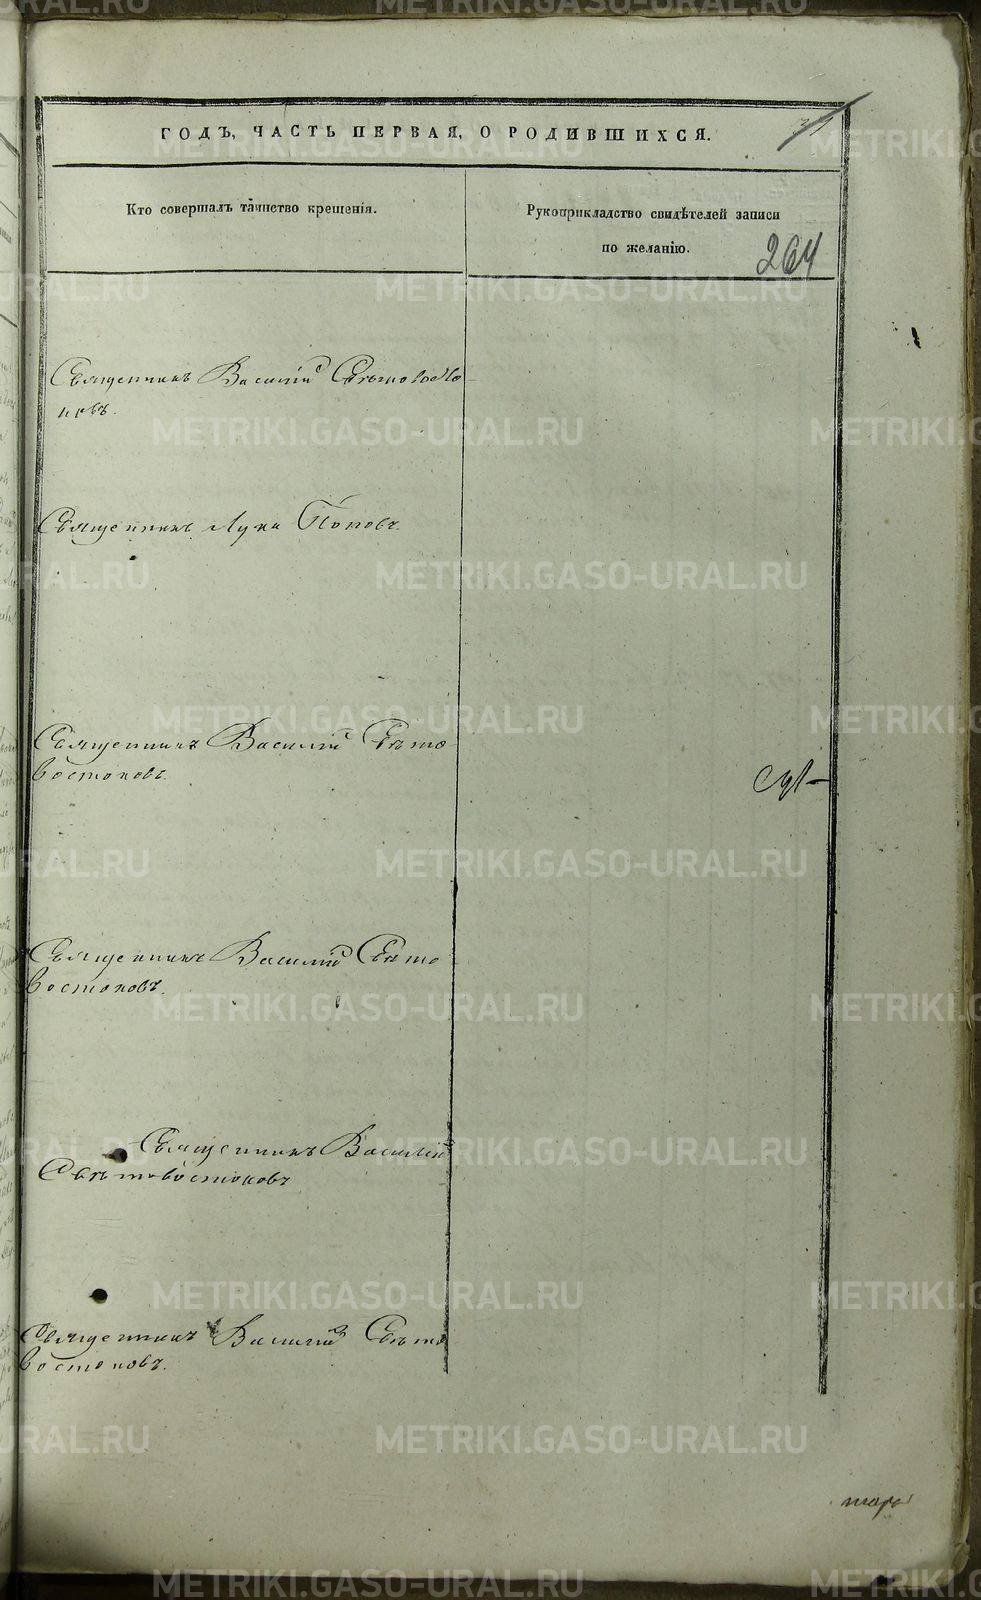 ГОДЪ, ЧАСТЬ ПЕРВАЯ, О РОДИВШИХСЯ.
Кто совершалъ таинство крещенія.
Рукоприкладство свидѣтелей записи
по желанію.
264
Священникъ Василій
Священникъ Лука Поповъ.
Священникъ Василій Свѣто
востоковъ.
Священникъ Василій Свѣто
востоковъ.
Священникъ Василій
Свѣтовостоковъ
Священникъ Василій Свѣто
востоковъ.
METRIKI.GASO-URAL.RU